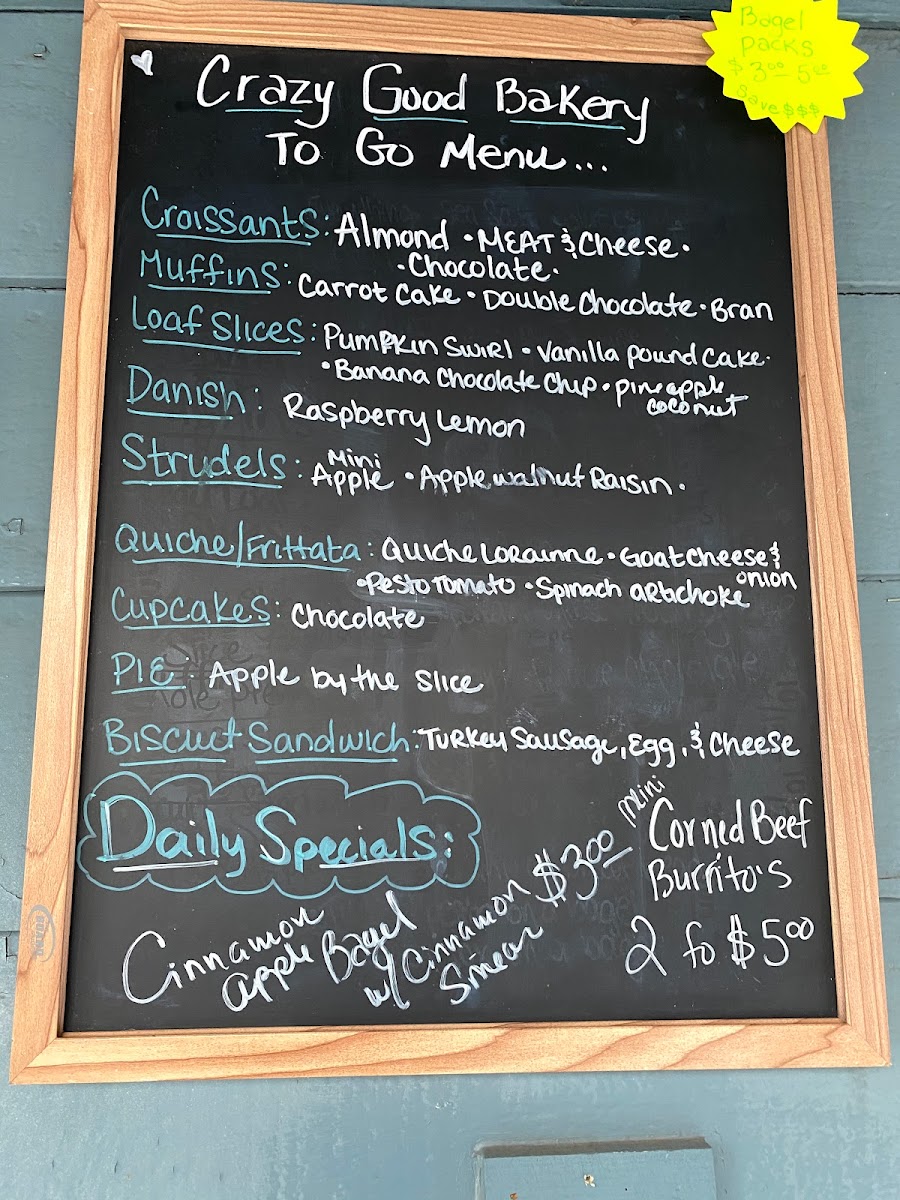 Bagel
packs
$3⁰⁰-5⁰⁰
Save $$$
Crazy Good Bakery
To Go Menu...
Croissants: Almond • MEAT & Cheese •
• Chocolate •
Muffins: Carrot Cake • Double Chocolate • Bran
Loaf Slices: Pumpkin Swirl • Vanilla Pound Cake •
• Banana Chocolate Chip • pineapple
coconut
Danish: Raspberry Lemon
Strudels: Mini Apple • Apple walnut Raisin •
Quiche/Frittata: Quiche Lorainne • Goat Cheese &
onion
• Pesto Tomato • Spinach artichoke
Cupcakes: Chocolate
Pie: Apple by the Slice
Biscuit Sandwich: Turkey Sausage, Egg, & Cheese
Daily Specials:
Cinnamon
apple Bagel
w/ Cinnamon
Smear
$3⁰⁰
mini
Corned Beef
Burrito's
2 fo $5⁰⁰